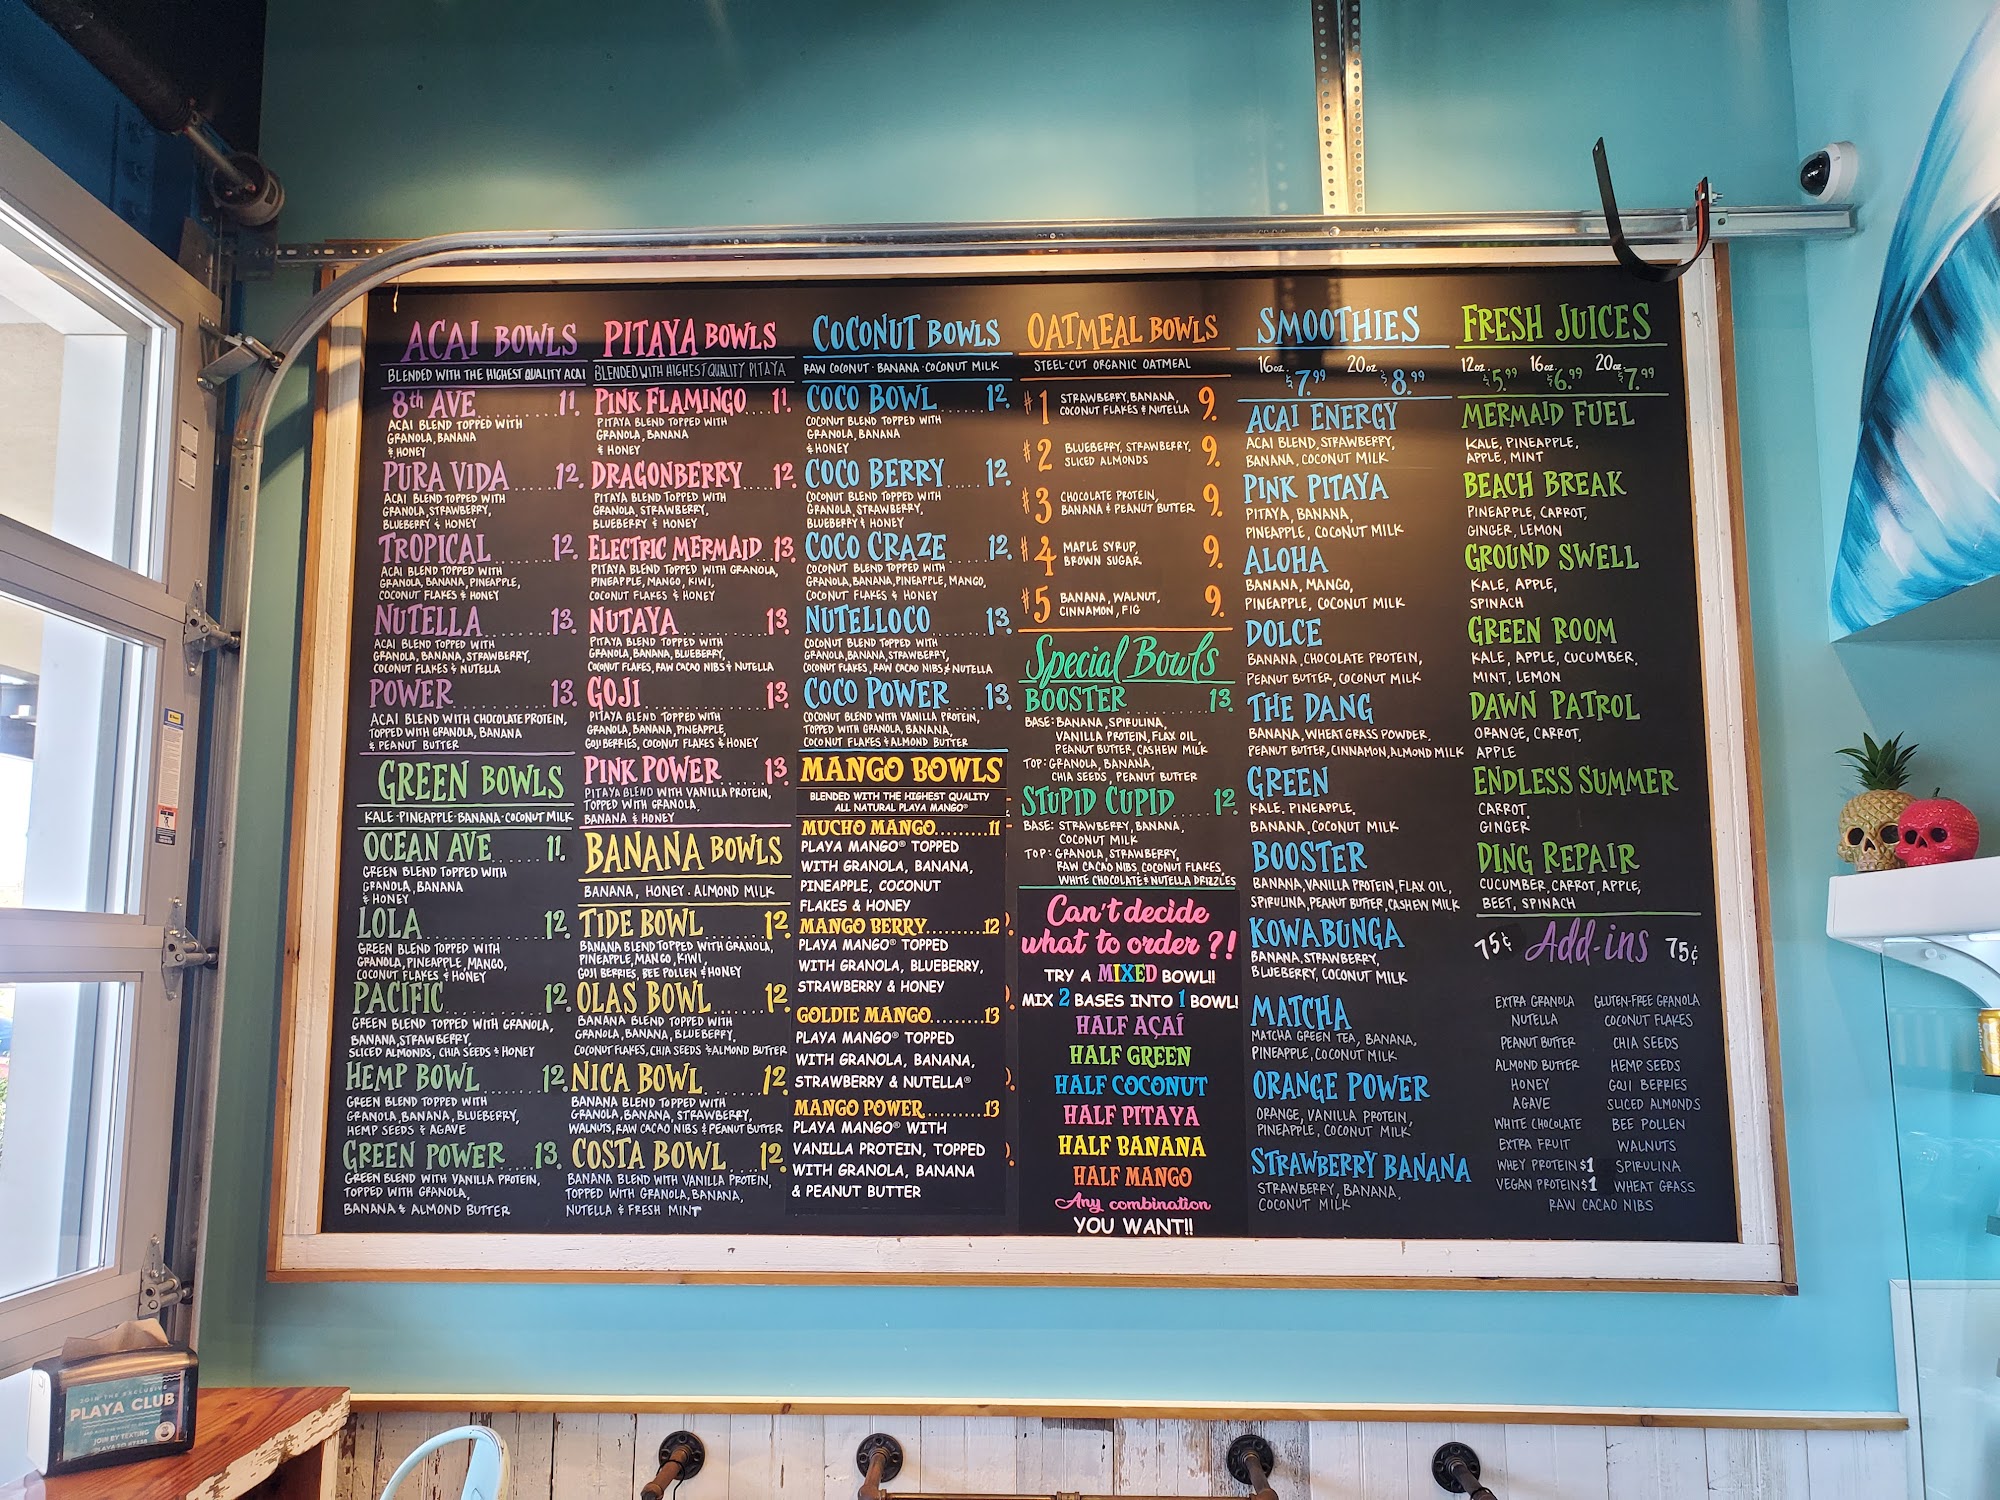 ACAI BOWLS
BLENDED WITH THE HIGHEST QUALITY ACAI
8th AVE 11.
ACAI BLEND TOPPED WITH
GRANOLA, BANANA
& HONEY
PURA VIDA 12.
ACAI BLEND TOPPED WITH
GRANOLA, STRAWBERRY,
BLUEBERRY & HONEY
TROPICAL 12.
ACAI BLEND TOPPED WITH
GRANOLA, BANANA, PINEAPPLE,
COCONUT FLAKES & HONEY
NUTELLA 13.
ACAI BLEND TOPPED WITH
GRANOLA, BANANA, STRAWBERRY,
COCONUT FLAKES & NUTELLA
POWER 13.
ACAI BLEND WITH CHOCOLATE PROTEIN,
TOPPED WITH GRANOLA, BANANA
& PEANUT BUTTER
GREEN BOWLS
KALE · PINEAPPLE · BANANA · COCONUT MILK
OCEAN AVE 11.
GREEN BLEND TOPPED WITH
GRANOLA, BANANA
& HONEY
LOLA 12.
GREEN BLEND TOPPED WITH
GRANOLA, PINEAPPLE, MANGO,
COCONUT FLAKES & HONEY
PACIFIC 12.
GREEN BLEND TOPPED WITH GRANOLA,
BANANA, STRAWBERRY,
SLICED ALMONDS, CHIA SEEDS & HONEY
HEMP BOWL 12.
GREEN BLEND TOPPED WITH
GRANOLA, BANANA, BLUEBERRY,
HEMP SEEDS & AGAVE
GREEN POWER 13.
GREEN BLEND WITH VANILLA PROTEIN,
TOPPED WITH GRANOLA,
BANANA & ALMOND BUTTER
PITAYA BOWLS
BLENDED WITH HIGHEST QUALITY PITAYA
PINK FLAMINGO 11.
PITAYA BLEND TOPPED WITH
GRANOLA, BANANA
& HONEY
DRAGONBERRY 12.
PITAYA BLEND TOPPED WITH
GRANOLA, STRAWBERRY,
BLUEBERRY & HONEY
ELECTRIC MERMAID 13.
PITAYA BLEND TOPPED WITH GRANOLA,
PINEAPPLE, MANGO, KIWI,
COCONUT FLAKES & HONEY
NUTAYA 13.
PITAYA BLEND TOPPED WITH
GRANOLA, BANANA, BLUEBERRY,
COCONUT FLAKES, RAW CACAO NIBS & NUTELLA
GOJI 13.
PITAYA BLEND TOPPED WITH
GRANOLA, BANANA, PINEAPPLE,
GOJI BERRIES, COCONUT FLAKES & HONEY
PINK POWER 13.
PITAYA BLEND WITH VANILLA PROTEIN,
TOPPED WITH GRANOLA,
BANANA & HONEY
BANANA BOWLS
BANANA, HONEY · ALMOND MILK
TIDE BOWL 12.
BANANA BLEND TOPPED WITH GRANOLA,
PINEAPPLE, MANGO, KIWI,
GOJI BERRIES, BEE POLLEN & HONEY
OLAS BOWL 12.
BANANA BLEND TOPPED WITH
GRANOLA, BANANA, BLUEBERRY,
COCONUT FLAKES, CHIA SEEDS & ALMOND BUTTER
NICA BOWL 12.
BANANA BLEND TOPPED WITH
GRANOLA, BANANA, STRAWBERRY,
WALNUTS, RAW CACAO NIBS & PEANUT BUTTER
COSTA BOWL 12.
BANANA BLEND WITH VANILLA PROTEIN,
TOPPED WITH GRANOLA, BANANA,
NUTELLA & FRESH MINT
COCONUT BOWLS
RAW COCONUT · BANANA · COCONUT MILK
COCO BOWL 12.
COCONUT BLEND TOPPED WITH
GRANOLA, BANANA
& HONEY
COCO BERRY 12.
COCONUT BLEND TOPPED WITH
GRANOLA, STRAWBERRY,
BLUEBERRY & HONEY
COCO CRAZE 12.
COCONUT BLEND TOPPED WITH
GRANOLA, BANANA, PINEAPPLE, MANGO,
COCONUT FLAKES & HONEY
NUTELLOCO 13.
COCONUT BLEND TOPPED WITH
GRANOLA, BANANA, STRAWBERRY,
COCONUT FLAKES, RAW CACAO NIBS & NUTELLA
COCO POWER 13.
COCONUT BLEND WITH VANILLA PROTEIN,
TOPPED WITH GRANOLA, BANANA,
COCONUT FLAKES & ALMOND BUTTER
MANGO BOWLS
BLENDED WITH THE HIGHEST QUALITY
ALL NATURAL PLAYA MANGO®
MUCHO MANGO.........11
PLAYA MANGO® TOPPED
WITH GRANOLA, BANANA,
PINEAPPLE, COCONUT
FLAKES & HONEY
MANGO BERRY..........12
PLAYA MANGO® TOPPED
WITH GRANOLA, BLUEBERRY,
STRAWBERRY & HONEY
GOLDIE MANGO.........13
PLAYA MANGO® TOPPED
WITH GRANOLA, BANANA,
STRAWBERRY & NUTELLA®
MANGO POWER..........13
PLAYA MANGO® WITH
VANILLA PROTEIN, TOPPED
WITH GRANOLA, BANANA
& PEANUT BUTTER
OATMEAL BOWLS
STEEL-CUT ORGANIC OATMEAL
#1 STRAWBERRY, BANANA,
COCONUT FLAKES & NUTELLA 9.
#2 BLUEBERRY, STRAWBERRY,
SLICED ALMONDS 9.
#3 CHOCOLATE PROTEIN,
BANANA & PEANUT BUTTER 9.
#4 MAPLE SYRUP,
BROWN SUGAR 9.
#5 BANANA, WALNUT,
CINNAMON, FIG 9.
Special Bowls
BOOSTER 13.
BASE: BANANA, SPIRULINA,
VANILLA PROTEIN, FLAX OIL,
PEANUT BUTTER, CASHEW MILK
TOP: GRANOLA, BANANA,
CHIA SEEDS, PEANUT BUTTER
STUPID CUPID 12.
BASE: STRAWBERRY, BANANA,
COCONUT MILK
TOP: GRANOLA, STRAWBERRY,
RAW CACAO NIBS, COCONUT FLAKES,
WHITE CHOCOLATE & NUTELLA DRIZZLES
Can't decide
what to order?!
TRY A MIXED BOWL!!
MIX 2 BASES INTO 1 BOWL!
HALF AÇAÍ
HALF GREEN
HALF COCONUT
HALF PITAYA
HALF BANANA
HALF MANGO
Any combination
YOU WANT!!
SMOOTHIES
16oz. $7.99 20oz. $8.99
ACAI ENERGY
ACAI BLEND, STRAWBERRY,
BANANA, COCONUT MILK
PINK PITAYA
PITAYA, BANANA,
PINEAPPLE, COCONUT MILK
ALOHA
BANANA, MANGO,
PINEAPPLE, COCONUT MILK
DOLCE
BANANA, CHOCOLATE PROTEIN,
PEANUT BUTTER, COCONUT MILK
THE DANG
BANANA, WHEAT GRASS POWDER,
PEANUT BUTTER, CINNAMON, ALMOND MILK
GREEN
KALE, PINEAPPLE,
BANANA, COCONUT MILK
BOOSTER
BANANA, VANILLA PROTEIN, FLAX OIL,
SPIRULINA, PEANUT BUTTER, CASHEW MILK
KOWABUNGA
BANANA, STRAWBERRY,
BLUEBERRY, COCONUT MILK
MATCHA
MATCHA GREEN TEA, BANANA,
PINEAPPLE, COCONUT MILK
ORANGE POWER
ORANGE, VANILLA PROTEIN,
PINEAPPLE, COCONUT MILK
STRAWBERRY BANANA
STRAWBERRY, BANANA,
COCONUT MILK
FRESH JUICES
12oz. $5.99 16oz. $6.99 20oz. $7.99
MERMAID FUEL
KALE, PINEAPPLE,
APPLE, MINT
BEACH BREAK
PINEAPPLE, CARROT,
GINGER, LEMON
GROUND SWELL
KALE, APPLE,
SPINACH
GREEN ROOM
KALE, APPLE, CUCUMBER,
MINT, LEMON
DAWN PATROL
ORANGE, CARROT,
APPLE
ENDLESS SUMMER
CARROT,
GINGER
DING REPAIR
CUCUMBER, CARROT, APPLE,
BEET, SPINACH
75¢ Add-ins 75¢
EXTRA GRANOLA GLUTEN-FREE GRANOLA
NUTELLA COCONUT FLAKES
PEANUT BUTTER CHIA SEEDS
ALMOND BUTTER HEMP SEEDS
HONEY GOJI BERRIES
AGAVE SLICED ALMONDS
WHITE CHOCOLATE BEE POLLEN
EXTRA FRUIT WALNUTS
WHEY PROTEIN $1 SPIRULINA
VEGAN PROTEIN $1 WHEAT GRASS
RAW CACAO NIBS
JOIN THE EXCLUSIVE
PLAYA CLUB
JOIN BY TEXTING